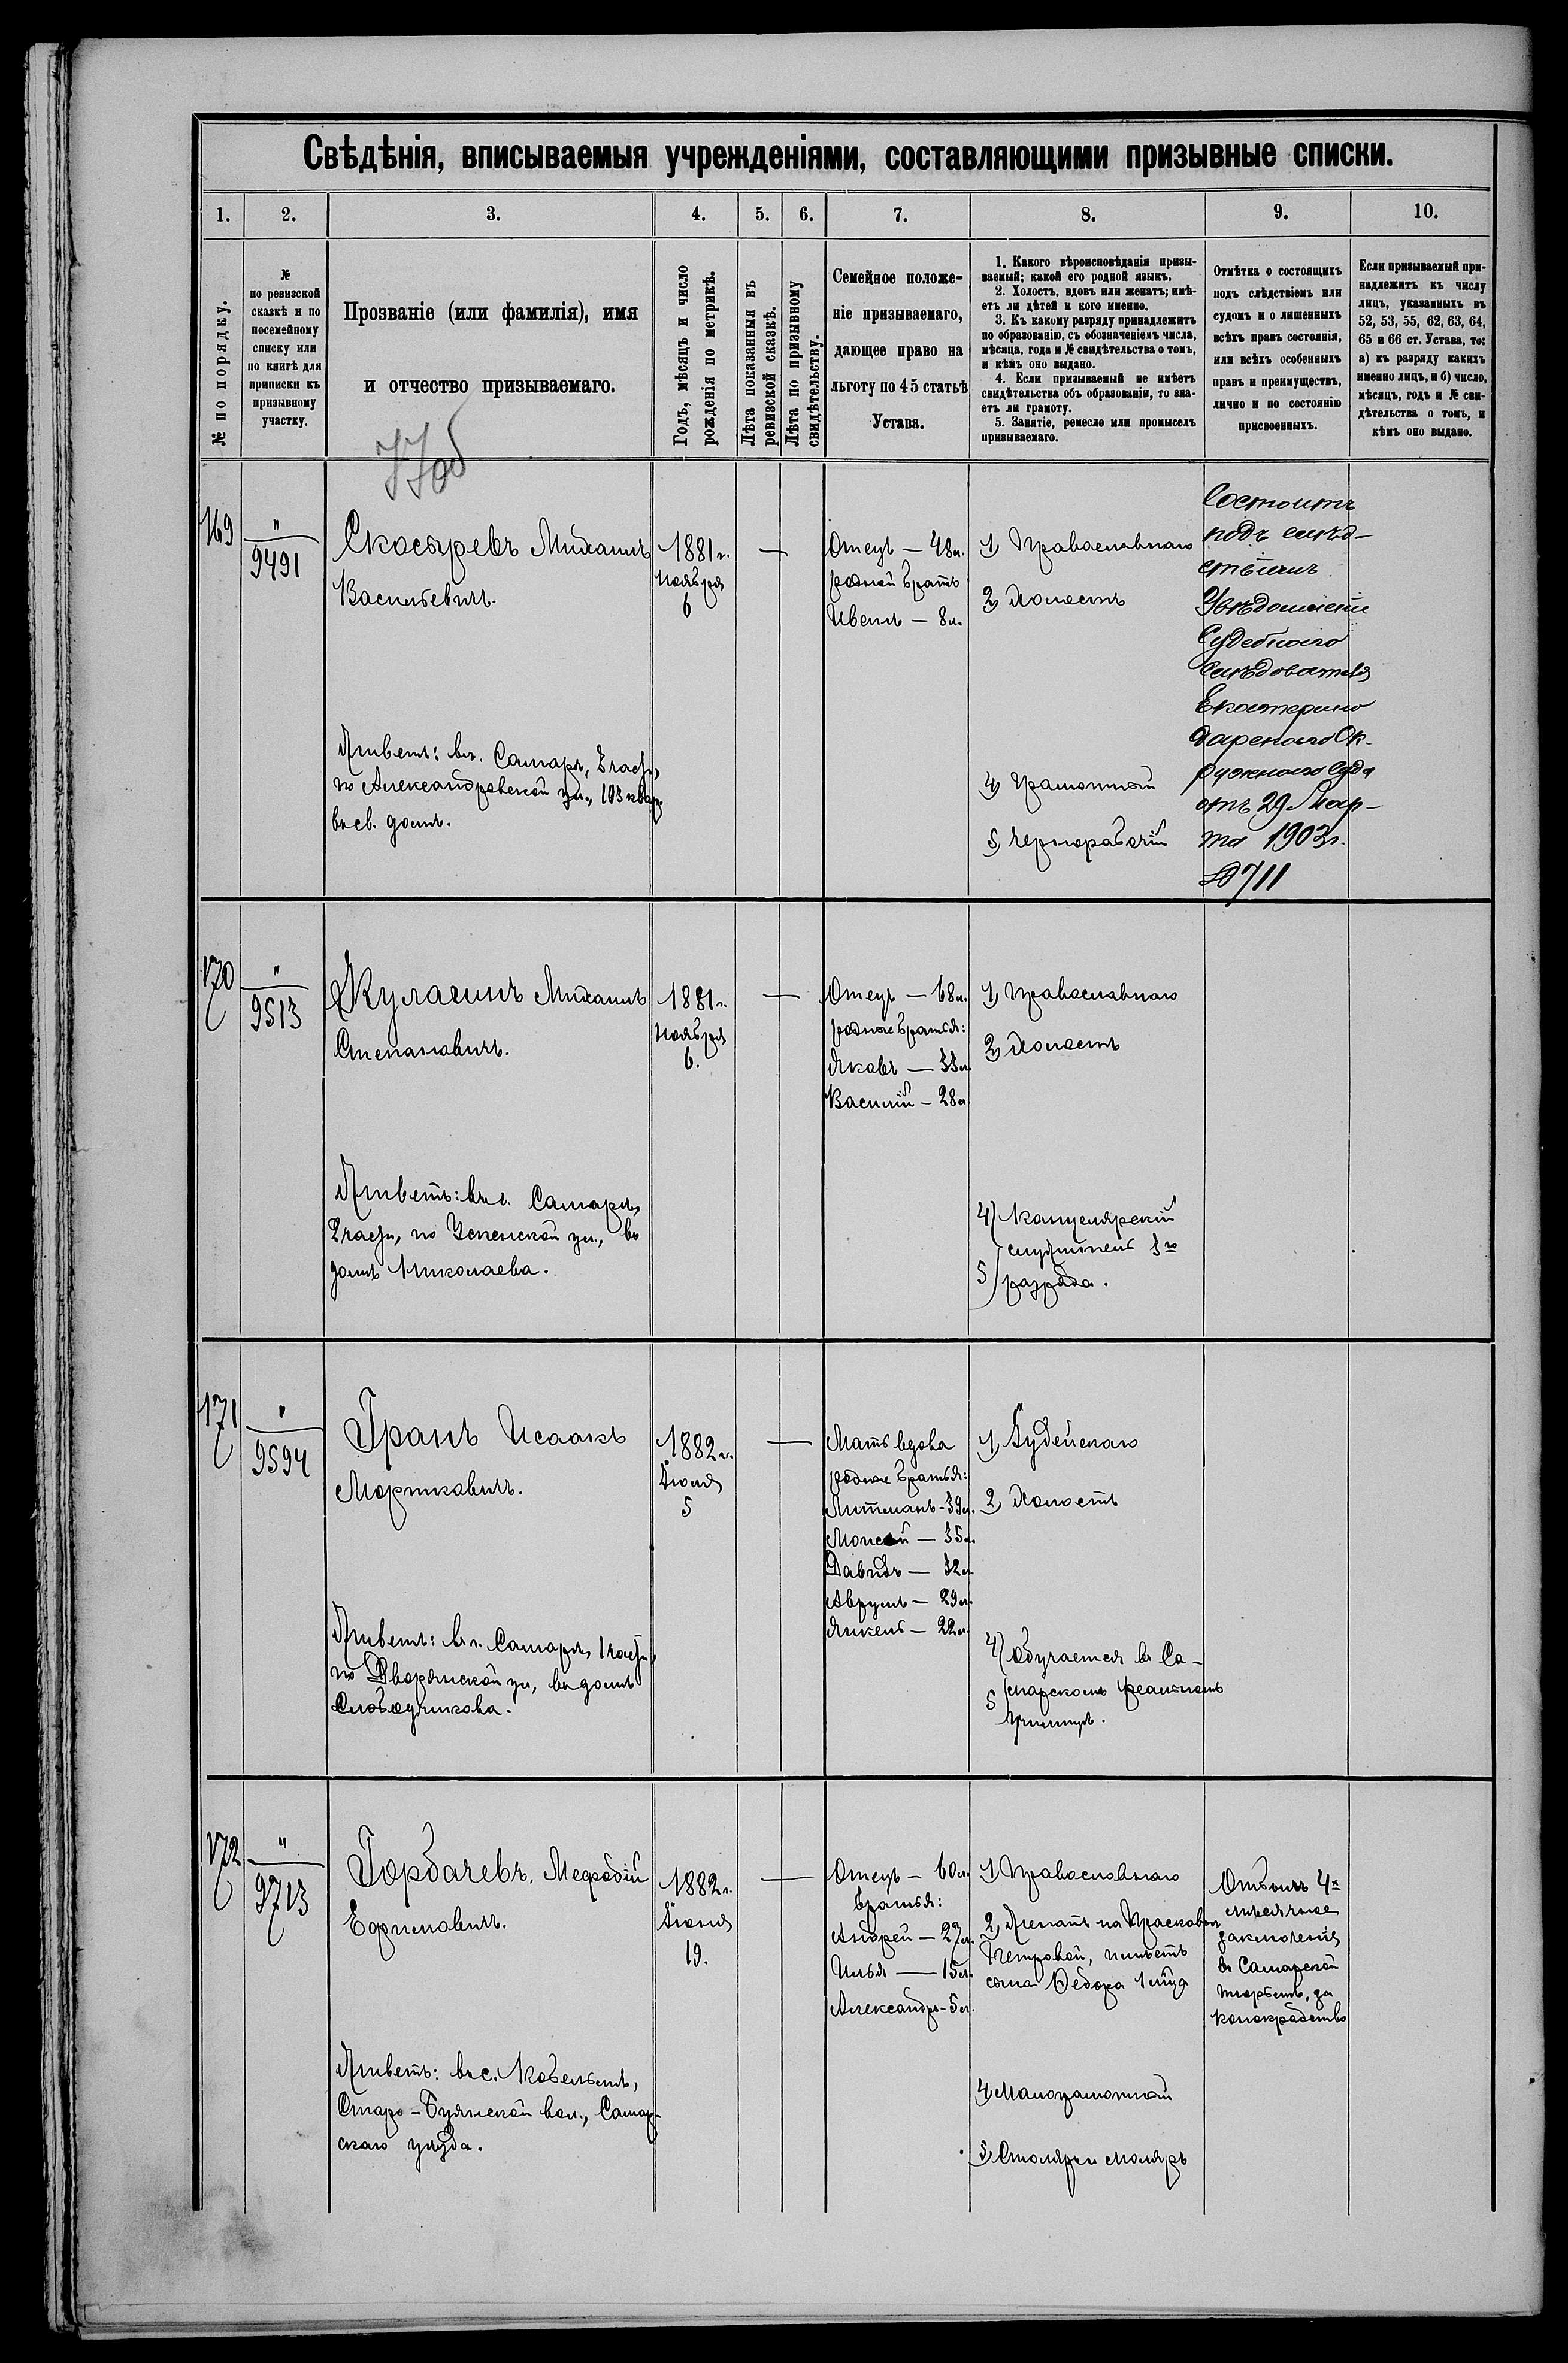 Свѣдѣнія, вписываемыя учрежденіями, составляющими призывные списки.
1.
2.
3.
4.
5.
6.
7.
8.
9.
10.
№ по порядку.
№
по ревизской
сказкѣ и по
посемейному
списку или
по книгѣ для
приписки къ
призывному
участку.
Прозваніе (или фамилія), имя
и отчество призываемаго.
Годъ, мѣсяцъ и число
рожденія по метрикѣ.
Лѣта показанныя въ
ревизской сказкѣ.
Лѣта по призывному
свидѣтельству.
Семейное положе-
ніе призываемаго,
дающее право на
льготу по 45 статьѣ
Устава.
1. Какого вѣроисповѣданія призы-
ваемый; какой его родной языкъ.
2. Холостъ, вдовъ или женатъ; имѣ-
етъ ли дѣтей и кого именно.
3. Къ какому разряду принадлежитъ
по образованію, съ обозначеніемъ числа,
мѣсяца, года и № свидѣтельства о томъ,
и кѣмъ оно выдано.
4. Если призываемый не имѣетъ
свидѣтельства объ образованіи, то зна-
етъ ли грамоту.
5. Занятіе, ремесло или промыселъ
призываемаго.
Отмѣтка о состоящихъ
подъ слѣдствіемъ или
судомъ и о лишенныхъ
всѣхъ правъ состоянія,
или всѣхъ особенныхъ
правъ и преимуществъ,
лично и по состоянію
присвоенныхъ.
Если призываемый при-
надлежитъ къ числу
лицъ, указанныхъ въ
52, 53, 55, 62, 63, 64,
65 и 66 ст. Устава, то:
а) къ разряду какихъ
именно лицъ, и б) число,
мѣсяцъ, годъ и № сви-
дѣтельства о томъ, и
кѣмъ оно выдано.
169
"
9491
Скосыревъ Михаилъ
Васильевичъ.
Живетъ: въ г. Самарѣ, 3 части,
по Александровской ул., 103 кварт.
въ св. домѣ.
1881 г.
Ноября
6
—
Отецъ — 48 л.
родной братъ
Ивелъ — 8 л.
1) Православнаго
2) Холостъ
4) Грамотный
5) Чернорабочій
Состоитъ
подъ слѣд-
ствіемъ
Увѣдомленіе
Судебнаго
Слѣдователя
Екатерино
дарскаго Ок-
ружнаго Суда
отъ 29 Мар-
та 1903 г.
№ 711
170
"
9513
Кулагинъ Михаилъ
Степановичъ.
Живетъ: въ г. Самарѣ,
2 части, по Успенской ул., въ
домѣ Николаева.
1881 г.
Ноября
6.
—
Отецъ — 68 л.
родные братья:
Яковъ — 33 л.
Василій — 28 л.
1) Православнаго
2) Холостъ
4) Канцелярскій
служитель 3го
5) разряда.
171
"
9594
Гранъ Исаакъ
Мортковичъ.
Живетъ: въ г. Самарѣ, 1 части,
по Дворянской ул., въ домѣ
Слободчикова.
1882 г.
Іюля
5
—
Мать вдова
родные братья:
Литманъ - 39 л.
Моисей — 35 л.
Давидъ — 32 л.
Аврумъ — 29 л.
Янкель — 22 л.
1) Іудейскаго
2) Холостъ
4) Обучается въ Са-
5) марскомъ реальномъ
училищѣ.
172
"
9713
Горбачевъ, Мефодій
Ефимовичъ.
Живетъ: въ с. Кобельмѣ,
Старо-Буянской вол., Самар-
скаго уѣзда.
1882 г.
Іюня
19.
—
Отецъ — 60 л.
братья:
Андрей — 27 л.
Илья — 15 л.
Александръ - 5 л.
1) Православнаго
2) Женатъ на Прасковьи
Петровой, имѣетъ
сына Ѳедора 1 года
4) Малограмотный
5) Столяръ и маляръ
Отбылъ 4х
мѣсячное
заключеніе
въ Самарской
тюрьмѣ, за
конокрадство